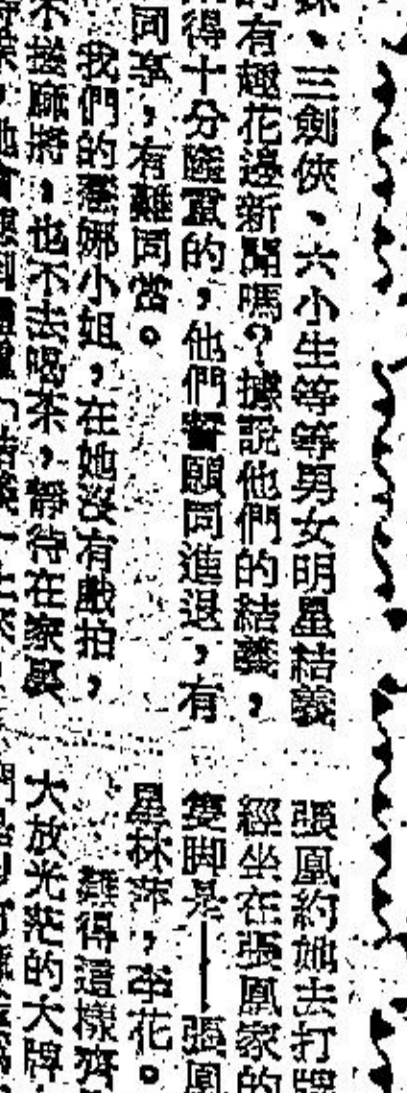 、三劍俠、六小生等等男女明星結義
有趣花邊新聞嗎？據說他們的結義，
得十分隆重的，他們誓願同進退，有
同享，有難同當。
我們的 娜小姐，在她沒有戲拍，
不搓麻將，也不去喝茶，靜待在家裏
張鳳約她去打牌
經坐在張鳳家的
隻脚是——張鳳
星林萍，李花。
難得這樣齊
大放光茫的大牌